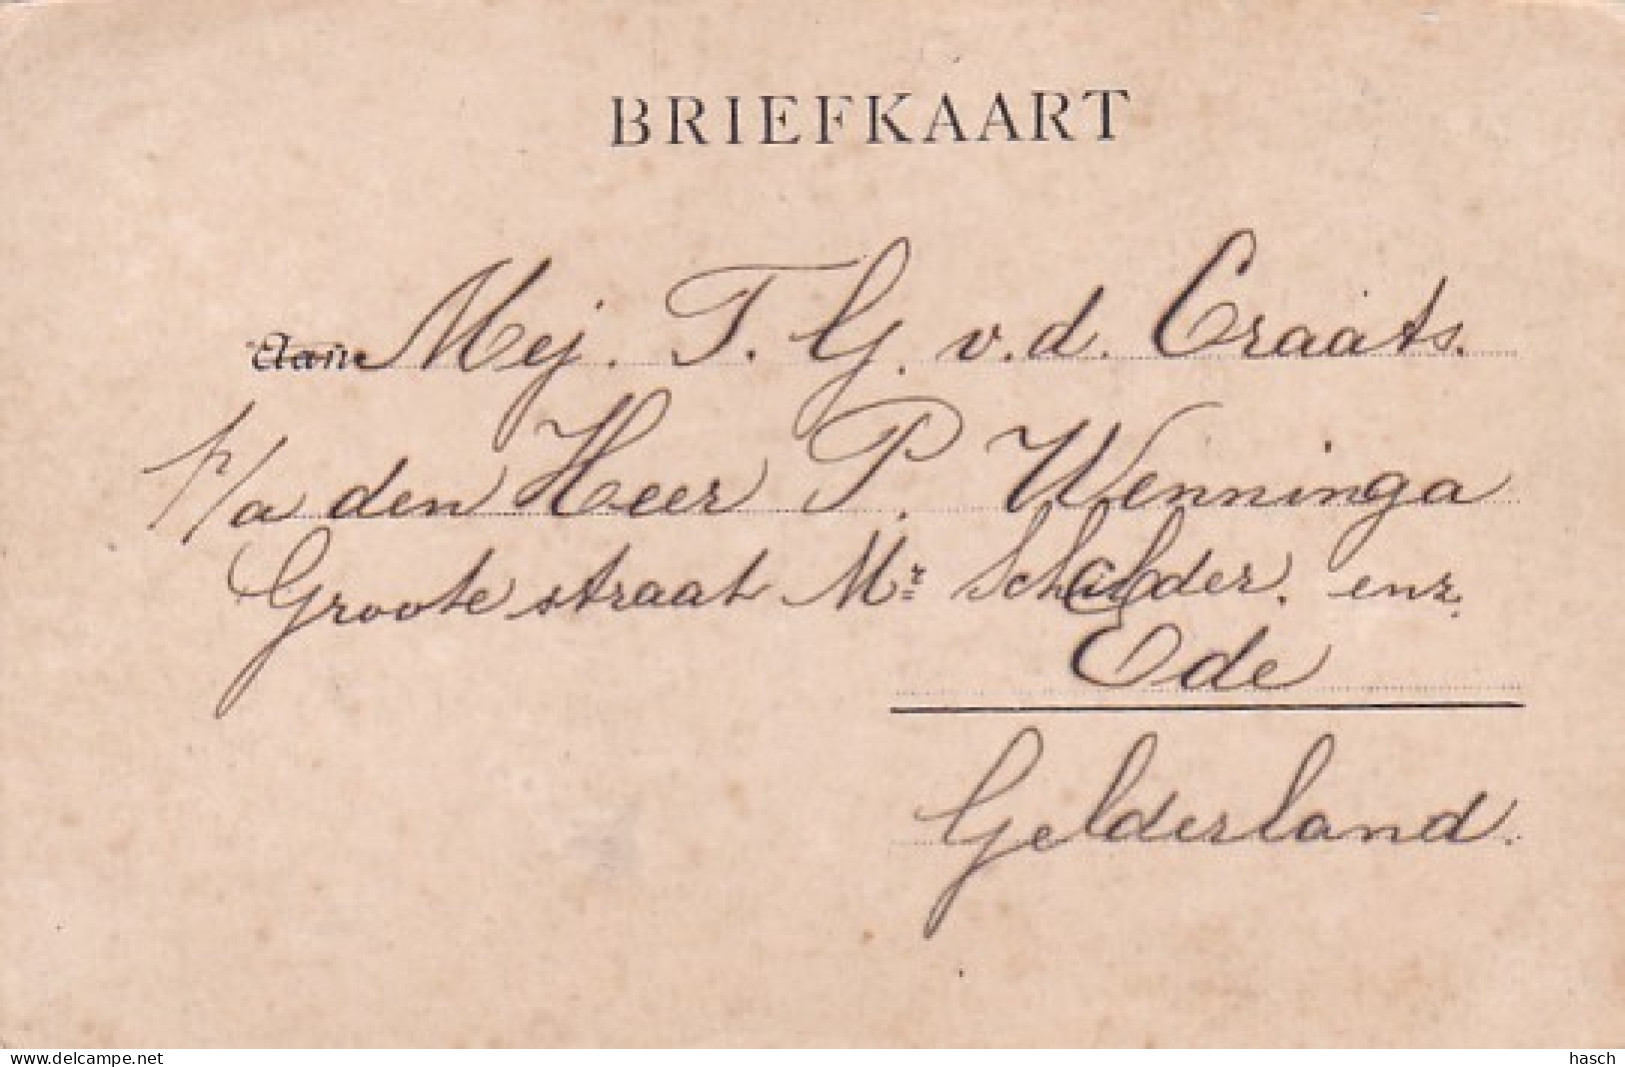 BRIEFKAART
Aan Mej. T. G. v. d. Craats.
p/a den Heer P. Wenninga
Groote straat Mr Schilder. enz.
Ede
Gelderland.
www.delcampe.net
hasch